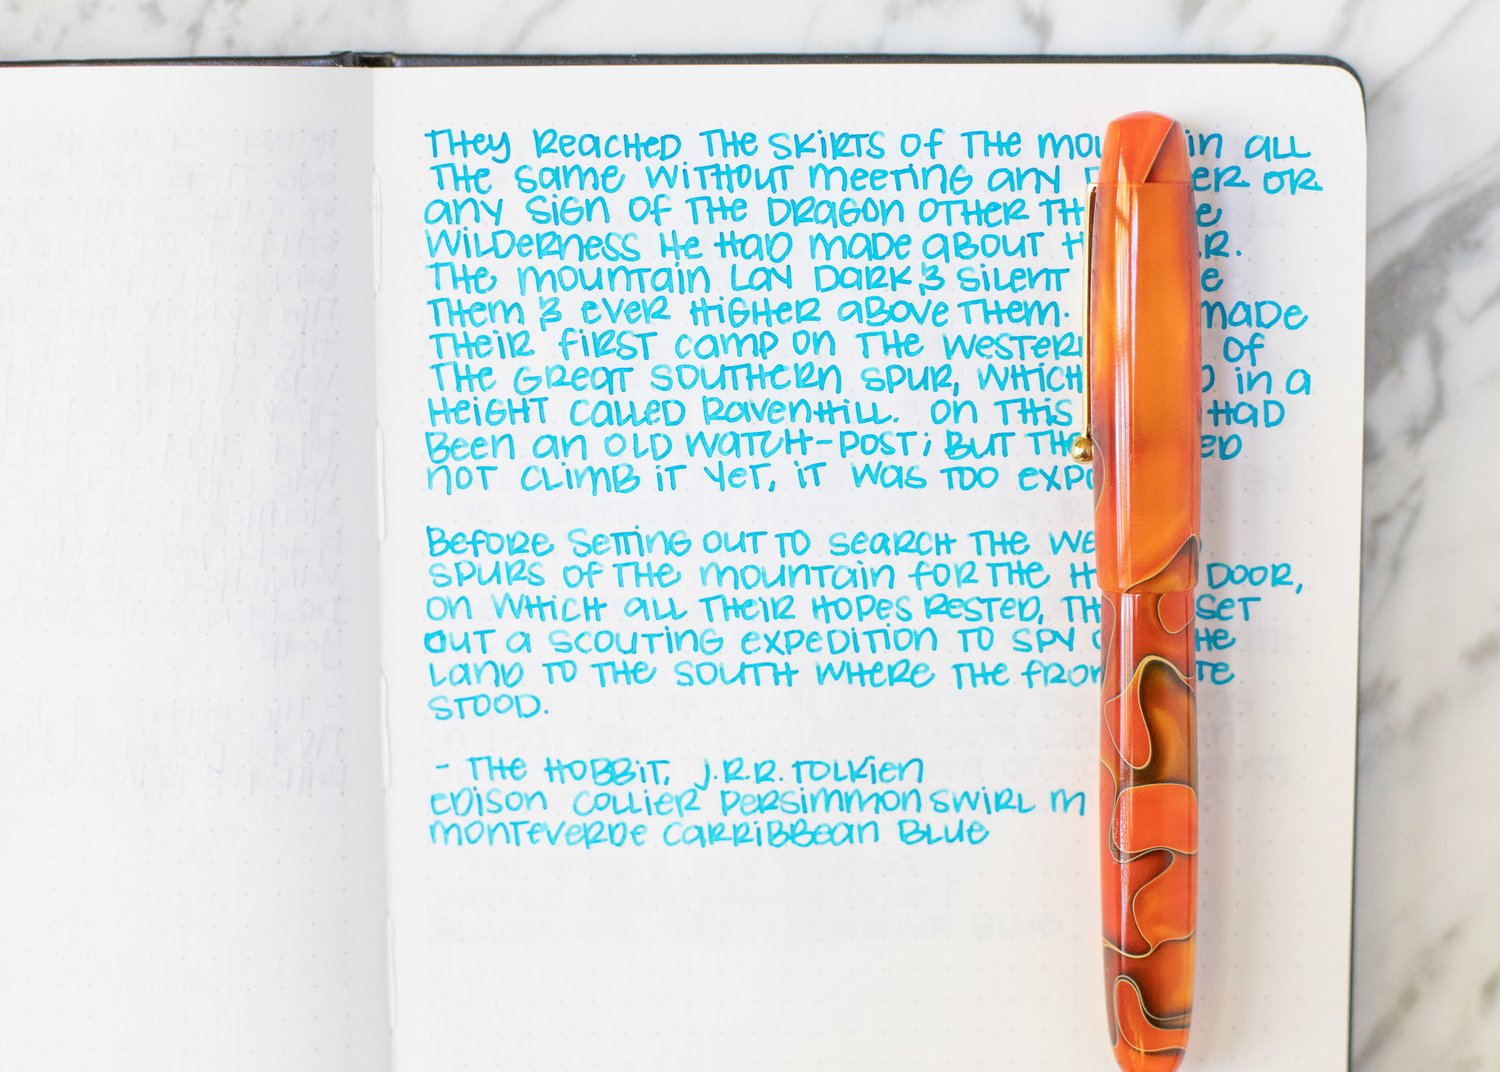 They reached the skirts of the mou in all
the same without meeting any er or
any sign of the dragon other th e
wilderness he had made about h r.
The mountain lay dark & silent e
them & ever higher above them. made
their first camp on the western of
the great southern spur, which d in a
height called Ravenhill. On this had
been an old watch-post; but the ed
not climb it yet, it was too expo

Before setting out to search the we
spurs of the mountain for the h door,
on which all their hopes rested, th set
out a scouting expedition to spy o he
land to the south where the fron te
stood.

- The Hobbit, J.R.R. Tolkien
Edison Collier Persimmon Swirl M
Monteverde Carribbean Blue